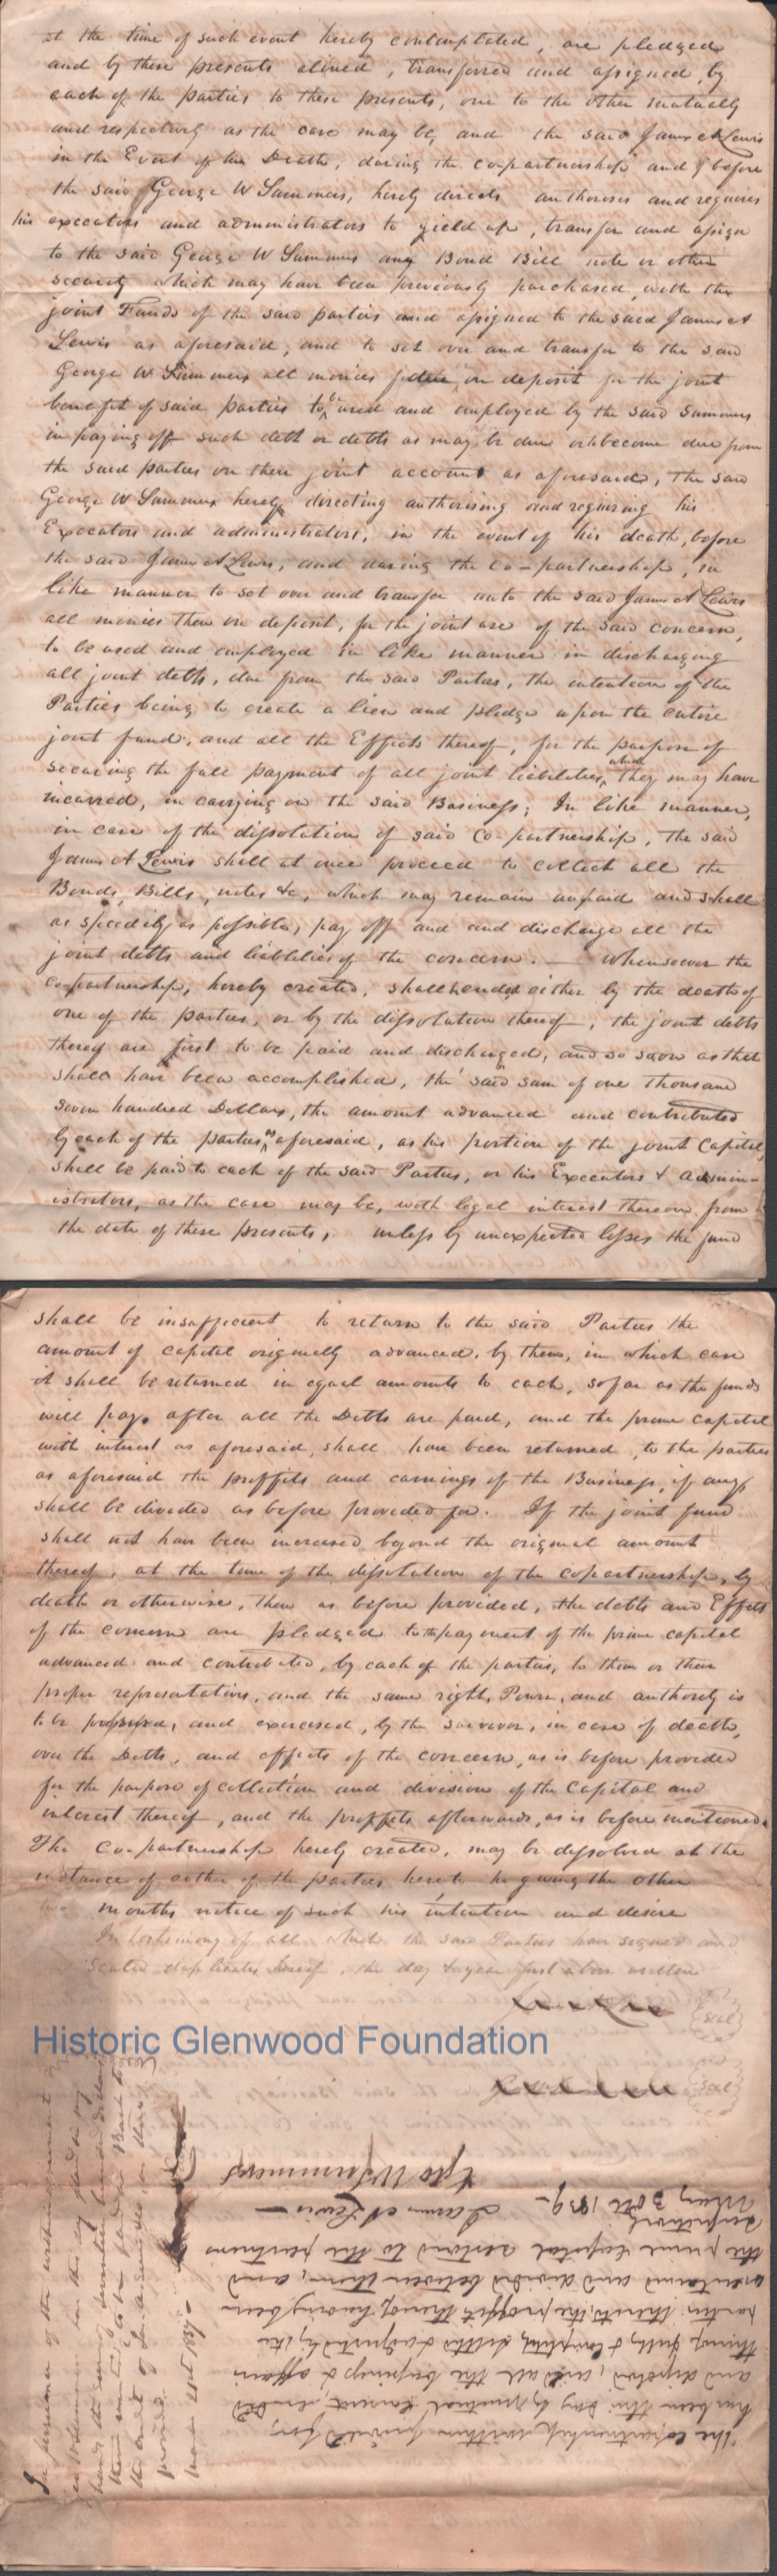 at the time of such event hereby contemplated, are pledged
and by these presents aliened, transferred and assigned, by
each of the parties to these presents, one to the other mutually
and respectively as the case may be, and the said James A Lewis
in the Event of his Death, during the copartnership and before
the said George W Summers, hereby directs authorises and requires
his executors and administrators to yield up, transfer and assign
to the said George W Summers any Bond Bill note or other
security which may have been previously purchased, with the
joint Funds of the said parties and assigned to the said James A
Lewis as aforesaid, and to set over and transfer to the said
George W Summers all monies on deposit for the joint
benefit of said parties to be used and employed by the said Summers
in paying off such debt or debts as may be due or become due from
the said parties on their joint account as aforesaid, The said
George W Summers hereby directing authorising and requiring his
Executors and administrators, in the event of his death, before
the said James A Lewis, and during the Co-partnership, in
like manner to set over and transfer unto the said James A Lewis
all monies then on deposit, for the joint use of the said concern,
to be used and employed in like manner in discharging
all joint debts, due from the said Parties, the intention of the
Parties being to create a lien and pledge upon the entire
joint fund, and all the Effects thereof, for the purpose of
securing the full payment of all joint liabilities, which they may have
incurred, in carrying on the said Business; In like manner,
in case of the dissolution of said Co-partnership, the said
James A Lewis shall at once proceed to collect all the
Bonds, Bills, notes &c, which may remain unpaid and shall
as speedily as possible, pay off and and discharge all the
joint debts and liablelities of the concern. — Whensoever the
co-partnership, hereby created, shall be ended either by the death of
one of the parties, or by the dissolution thereof, the joint debts
thereof are first to be paid and discharged, and so soon as that
shall have been accomplished, the said sum of one thousand
seven hundred Dollars, the amount advanced and contributed
by each of the parties, as aforesaid, as his portion of the joint Capital,
shall be paid to each of the said Parties, or his Executors & admin-
istrators, as the case may be, with legal interest thereon from
the date of these presents, unless by unexpected losses the fund
shall be insufficient to return to the said Parties the
amount of capital originally advanced, by them, in which case
it shall be returned in equal amounts to each, so far as the funds
will pay. after all the Debts are paid, and the prime capital
with interest as aforesaid, shall have been returned, to the parties
as aforesaid the proffits and earnings of the Business, if any
shall be divided as before provided for. If the joint fund
shall not have been increased beyond the original amount
thereof, at the time of the dissolution of the copartnership, by
death or otherwise, then as before provided, the debts and Effects
of the concern are pledged to the payment of the prime capital
advanced and contributed, by each of the parties, to them or their
proper representatives, and the same right, Power, and authority is
to be possessed, and exercised, by the survivor, in case of death,
over the Debts, and effects of the concern, as is before provided
for the purpose of collection and division of the Capital and
interest thereof, and the proffits afterwards, as is before mentioned.
The Co-partnership hereby created, may be dissolved at the
instance of either of the parties hereto he giving the other
months notice of such his intention and desire
In testimony of all which the said Parties have signed and
sealed duplicates hereof, the day & year first above written
Seal
Historic Glenwood Foundation
Seal
The copartnership within provided for,
has been this day by mutual consent ended
and dissolved, and all the business & affairs
thereof fully & completely settled & adjusted by the
parties thereto, the proffits thereof having been
ascertained and divided between them, and
the prime Capital restored to the partners
respectively
May 30th 1839— James A Lewis —
Geo W Summers
In pursuance of the within agreement
Geo W Summers has this day placed in my
hands the sum of seventeen hundred dollars
March 21st 1837